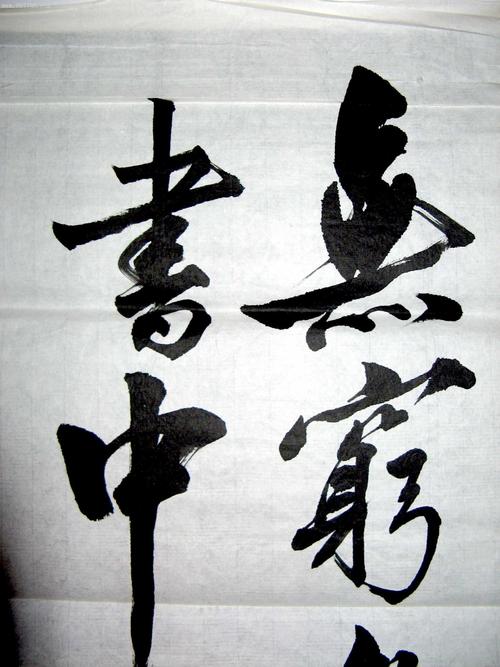 無窮
書中